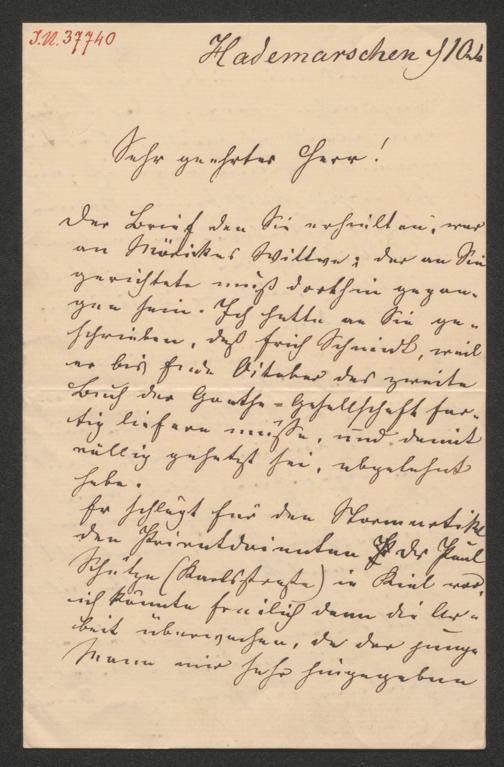 J.N. 37740
Hademarschen 10
Sehr geehrter Herr!
Der Brief den Sie erhielten, war
an Mörikes Wittwe; der an Sie
gerichtete muß dorthin gegan-
gen sein. Ich hatte an Sie ge-
schrieben, daß Erich Schmidt, weil
er bis Ende Oktober das zweite
Buch der Goethe-Gesellschaft fer-
tig liefern müsse, und damit
völlig gehetzt sei, abgelehnt
habe.
Er schlägt für den Stormartikel
den Privatdocenten Dr Paul
Schütze (Karlsstraße) in Kiel vor,
ich könnte freilich dann die Ar-
beit überwachen, da der junge
Mann mir sehr hingegeben